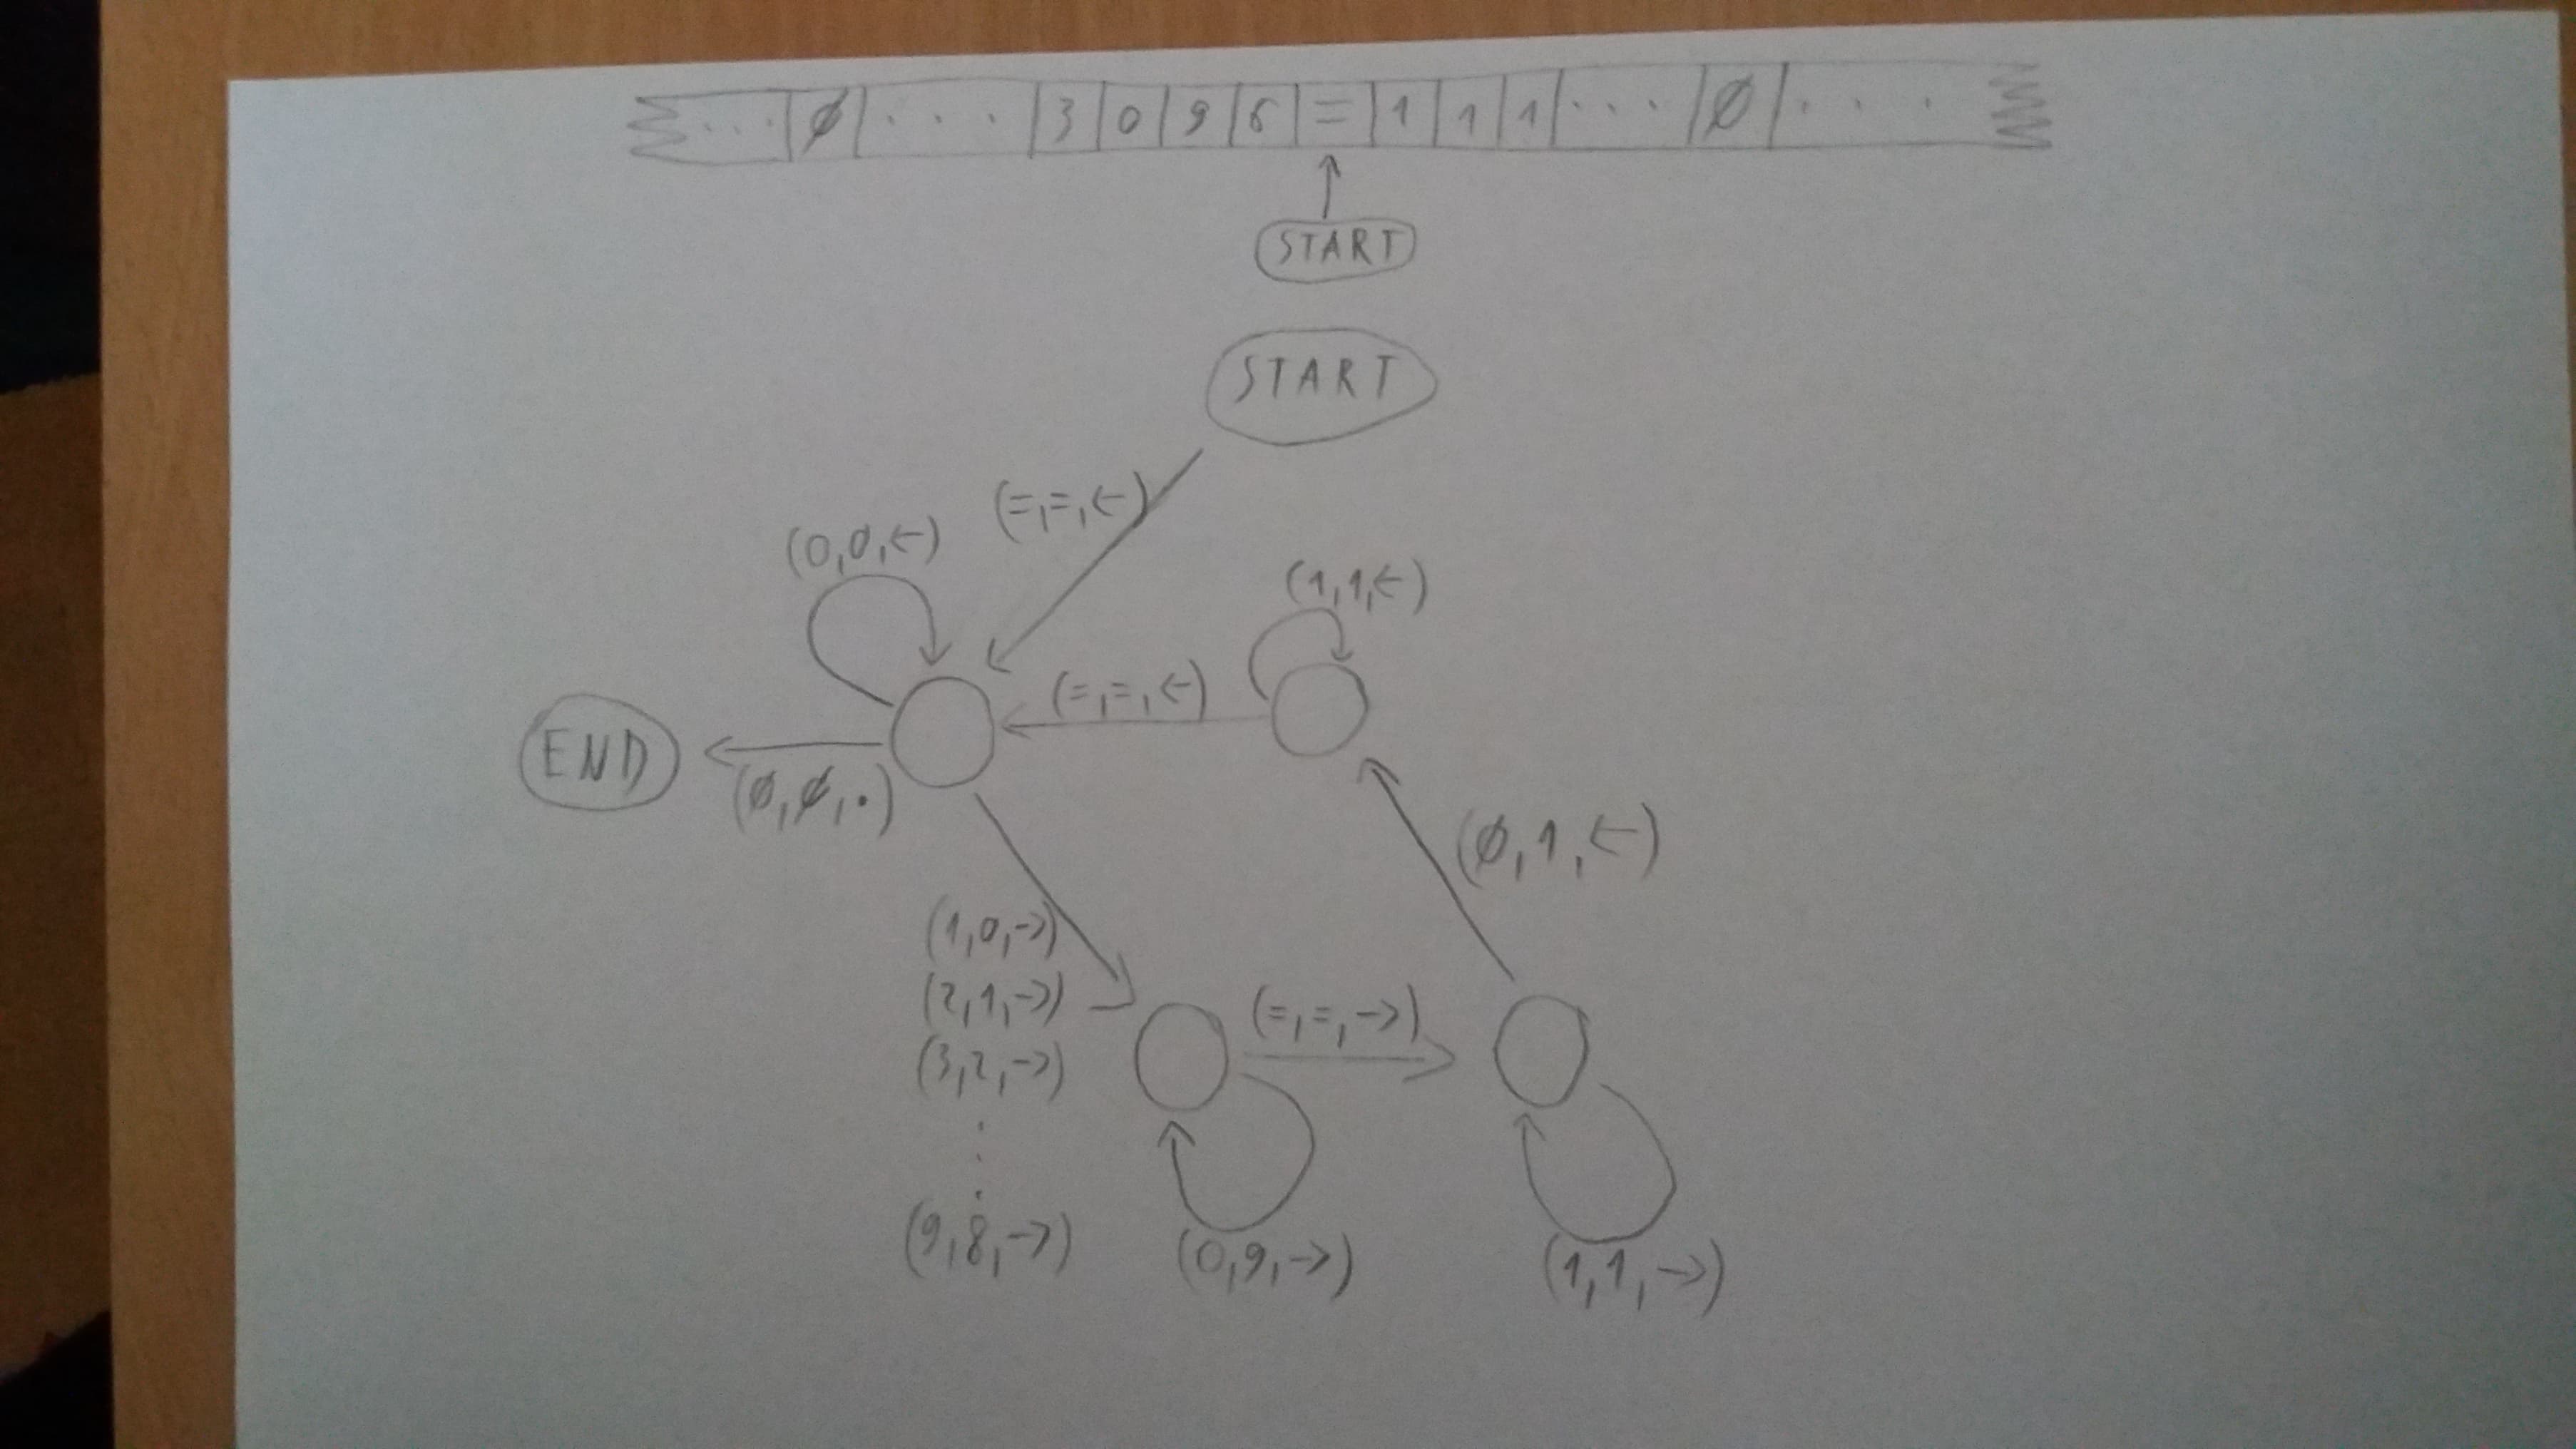 ... ∅ ... 3 0 9 6 = 1 1 1 ... ∅ ...
START
START
(=,=,←)
(0,0,←)
(1,1,←)
(=,=,←)
END
(∅,∅,·)
(∅,1,←)
(1,0,→)
(2,1,→)
(3,2,→)
(=,=,→)
⋮
(9,8,→)
(0,9,→)
(1,1,→)